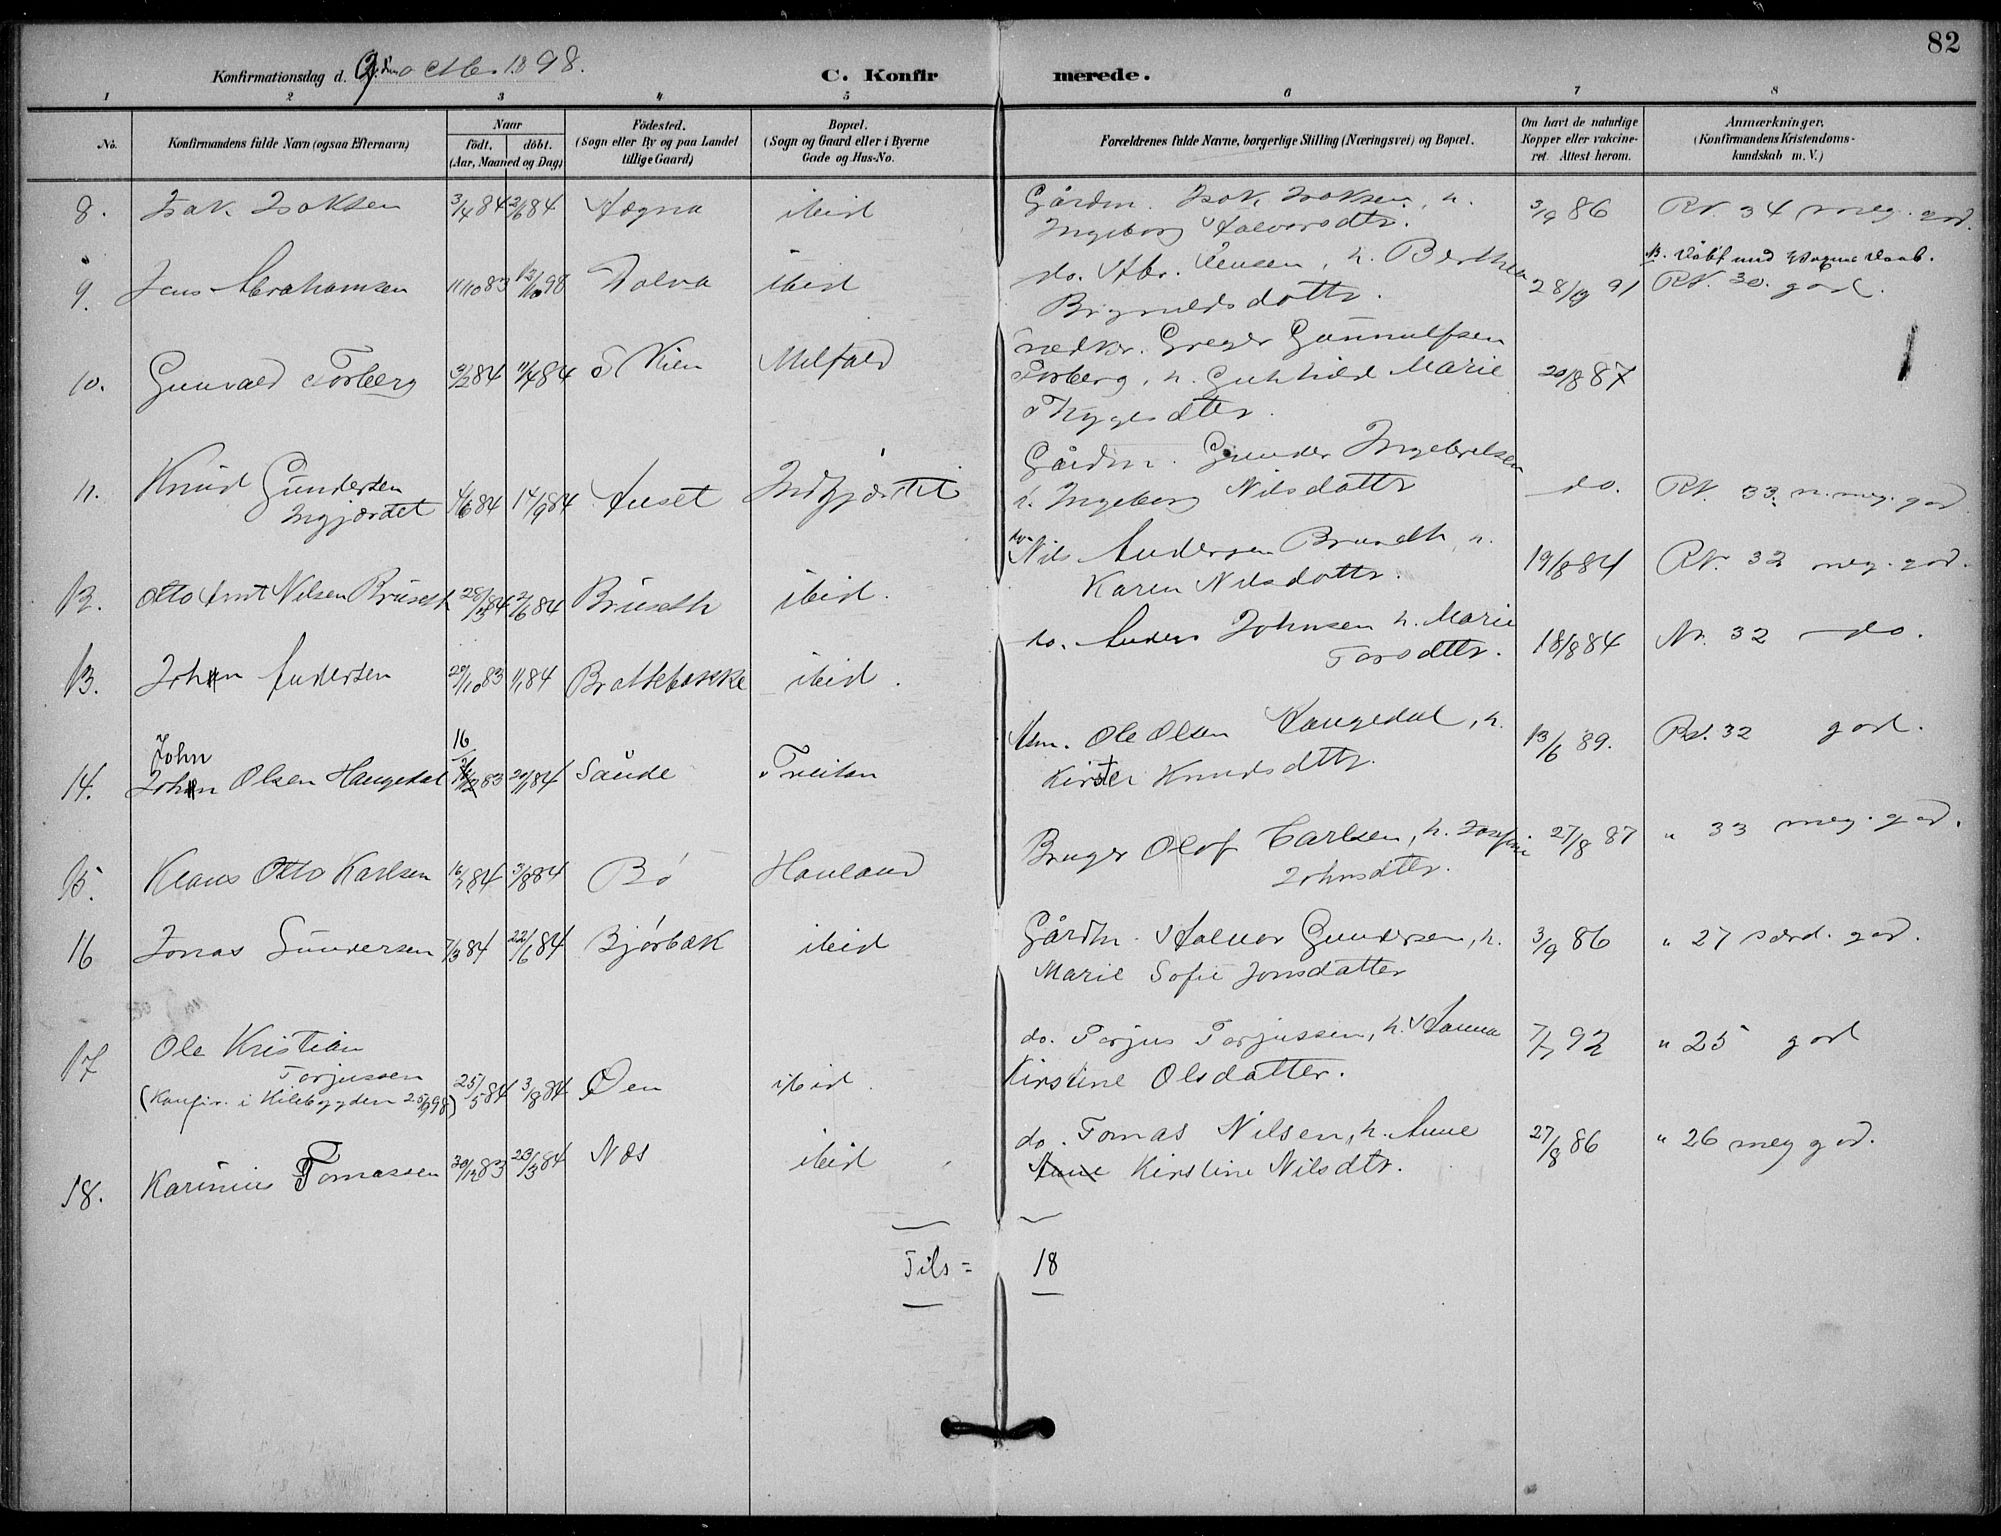 82
Konfirmationsdag d. 2den octbr 1898.
C. Konfirmerede.
1 2 3 4 5 6 7 8
No.
Konfirmandens fulde Navn (ogsaa Efternavn)
Naar
födt. döbt.
(Aar, Maaned og Dag)
Födested.
(Sogn eller By og paa Landet
tillige Gaard)
Bopæl.
(Sogn og Gaard eller i Byerne
Gade og Hus-No.
Forældrenes fulde Navne, borgerlige Stilling (Næringsvei) og Bopæl.
Om havt de naturlige
Kopper eller vakcine-
ret. Attest herom.
Anmærkninger.
(Konfirmandens Kristendoms-
kundskab m. V.)
8. Isak Isaksen 3/4 84 2/6 84 Hogna ibid Gårdm. Isak Isaksen, h. 3/9 86 RN. 34 meg. god.
Ingeborg Halvorsdtr.
B. döbt med Vogne Daab.
9. Jens Abrahamsen 11/10 83 12/10 98 Dolva ibid do. Abr. Jensen, h. Berthea 28/10 91 RN. 30. god.
Brynildsdottr.
10. Gunvald Torberg 3/2 84 11/4 84 Skien Melfald Snedker. Greger Gunnulfsen
Torberg, h. Gunhild Marie 20/8 87
Thygesdtr.
11. Knud Gundersen Auset Indgjærdet Gårdm. Gunder Ingebretsen do. RN. 33. n. meg. god
Ingjærdet 4/6 84 14/9 84 h. Ingeborg Nilsdottr
12. Otto Amt Nilsen Bruseth 28/3 84 2/6 84 Bruseth ibid. do. Nils Andersen Bruseth, h. 19/8 84 RN. 32 meg. god.
Karen Nilsdottr.
13. John Andersen 29/10 83 1/1 84 Brattebakke ibid. do. Anders Johnsen h. Marie 18/8 84 Nr. 32 do.
Torsdtter.
John 16
14. John Olsen Haugedal 83 20/1 84 Saude Treitan Hsm. Ole Olsen Haugedal, h. 13/6 89. Rs. 32 god.
Kirsten Knudsdttr.
15. Klaus Otto Karlsen 16/7 84 3/8 84 Bø Hauland Bruger Olof Carlsen, h. Josefine 27/8 87 " 33 meg. god.
Johnsdttr.
16 Jonas Gundersen 7/3 84 22/6 84 Bjørbæk ibid Gårdm. Halvor Gundersen, h. 3/9 86 " 27 særd. god.
Marie Sofie Jonsdatter
17 Ole Kristian do. Torjus Torjussen, h. Hanna 7/7 92 " 25 god
Torjussen 25/5 84 3/8 84 Øen ibid. Kirstine Olsdatter.
(Konfir. i Kilebygden 25/9 98)
18. Karinius Tomassen 30/12 83 23/3 84 Næs ibid do. Tomas Nilsen, h. Anne 27/8 86 " 26 meg god.
Anne Kirstine Nilsdtr.
Tils = 18